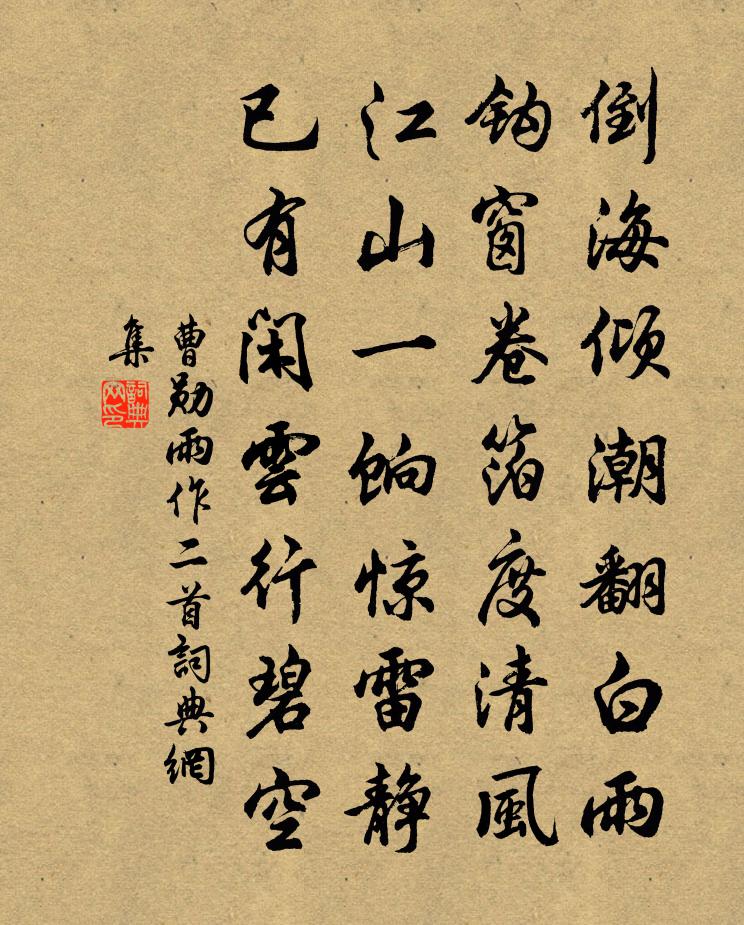 倒海倾潮翻白雨
钩窗卷箔度清風
江山一饷惊雷静
已有闲雲行碧空
曹勛雨作二首詞典網
集
詞典
网印